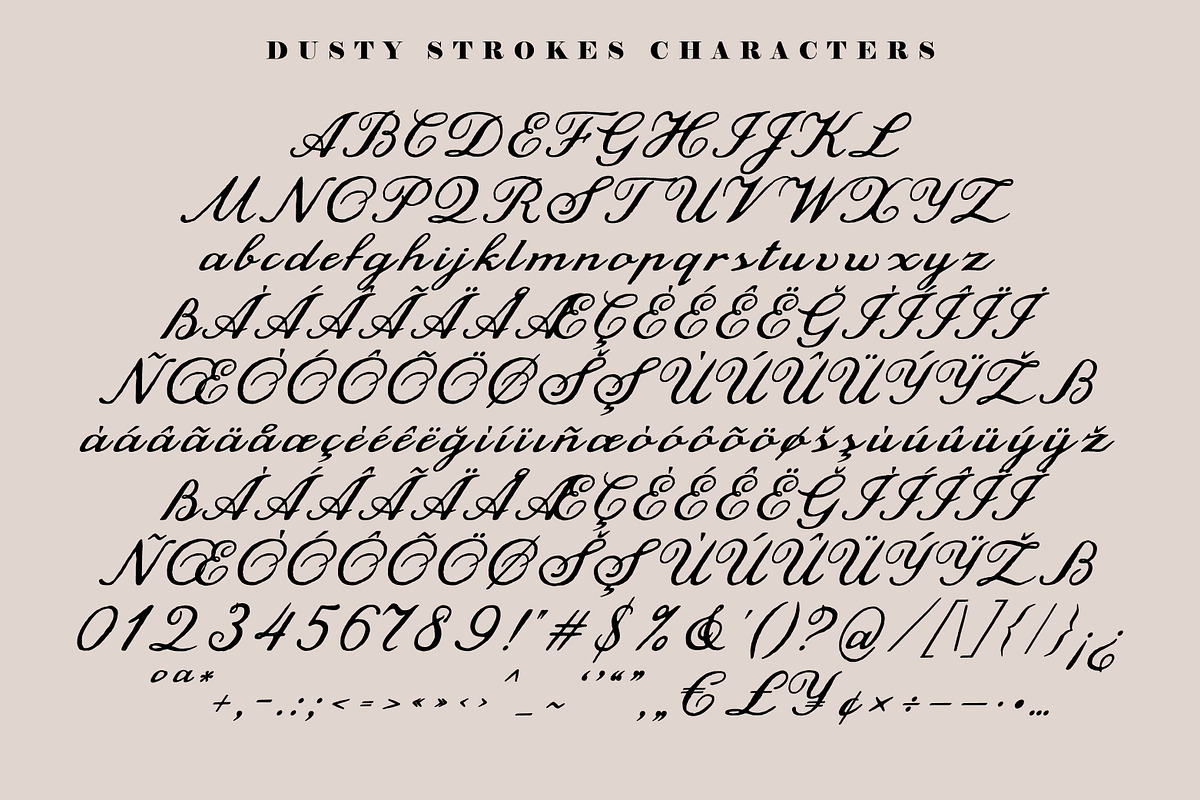 DUSTY STROKES CHARACTERS
ABCDEFGHIJKL
MNOPQRSTUVWXYZ
abcdefghijklmnopqrstuvwxyz
ßÀÁÂÃÄÅÆÇÈÉÊËĞÌÍÎÏİ
ÑŒÒÓÔÕÖØŠŞÙÚÛÜÝŸŽß
àáâãäåæçèéêëğìíïıñœòóôõöøšşùúûüýÿž
ßÀÁÂÃÄÅÆÇÈÉÊËĞÌÍÎÏİ
ÑŒÒÓÔÕÖØŠŞÙÚÛÜÝŸŽß
0123456789!"#$%&'()?@/[\]{|}¡¿
ºª*+,-.:;<=>«»‹›^_~‘’“”‚„€£¥¢×÷–—·•…